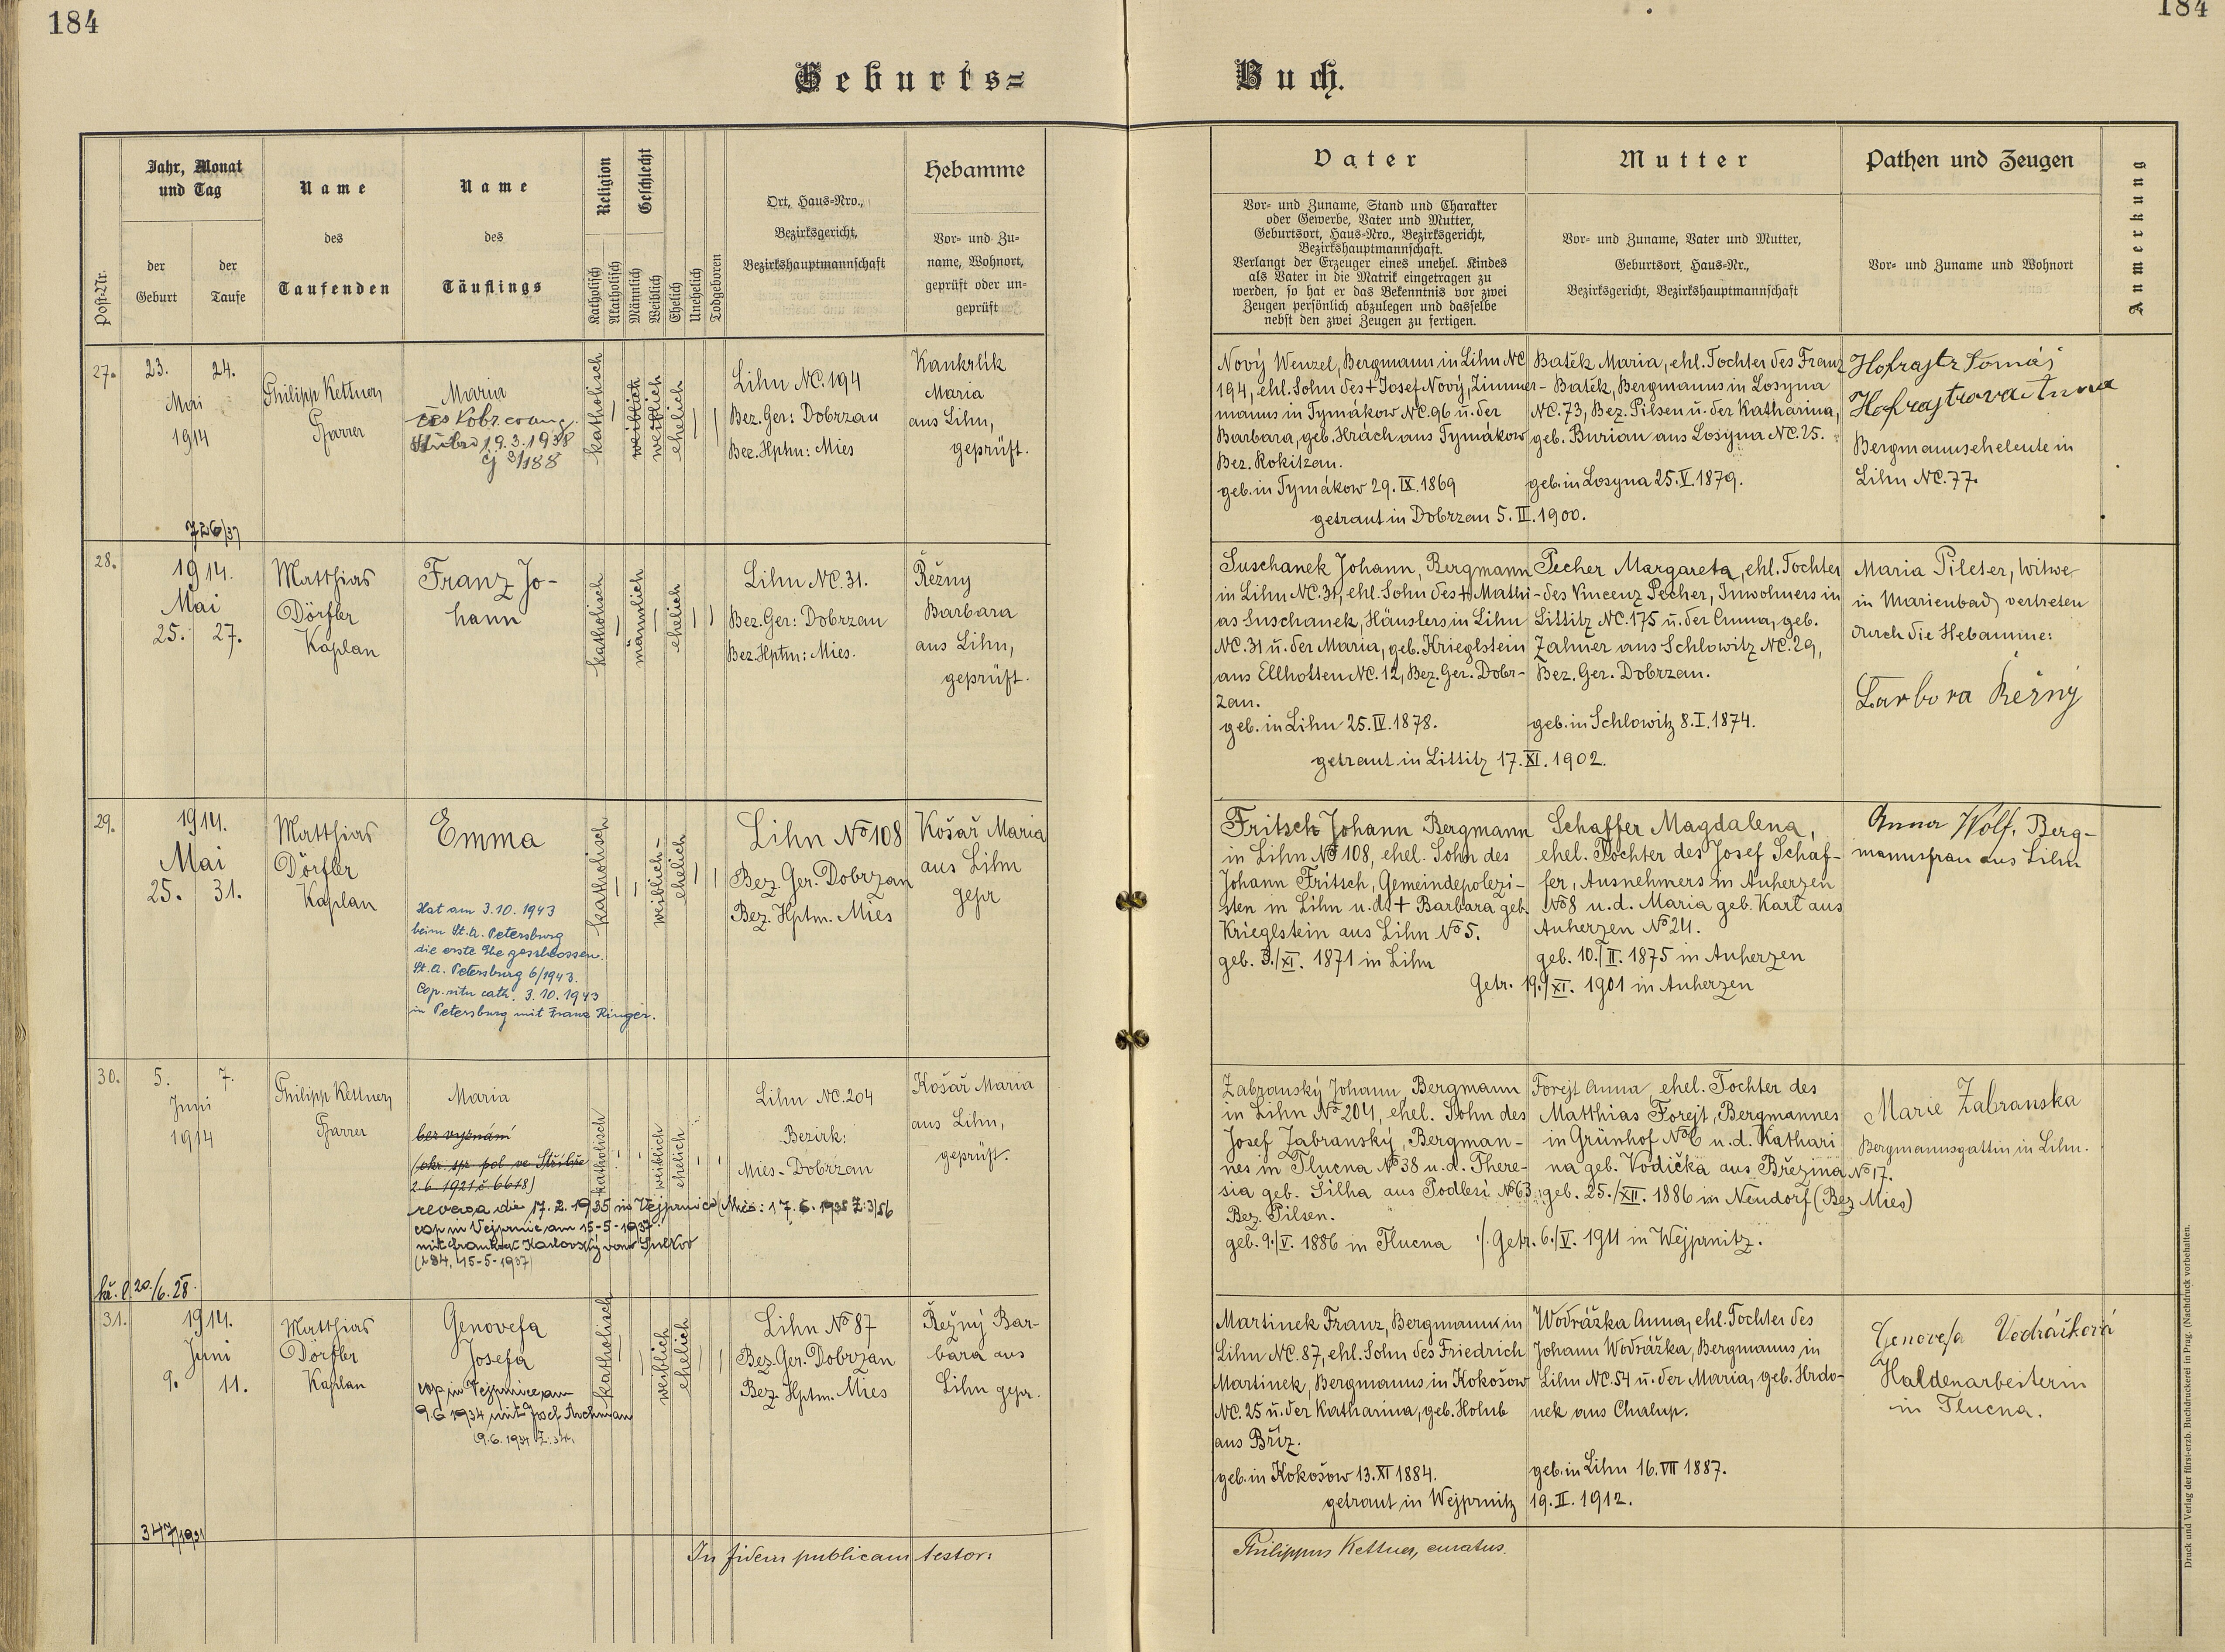 184
184
Geburts=
Buch.
Post-Nr.
Jahr, Monat
und Tag
der
Geburt
der
Taufe
Name
des
Taufenden
Name
des
Täuflings
Religion
Katholisch
Akatholisch
Geschlecht
Männlich
Weiblich
Ehelich
Unehelich
Todgeboren
Ort, Haus=Nro.,
Bezirksgericht,
Bezirkshauptmannschaft
Hebamme
Vor= und Zu=
name, Wohnort,
geprüft oder un=
geprüft
Vater
Vor= und Zuname, Stand und Charakter
oder Gewerbe, Vater und Mutter,
Geburtsort, Haus=Nro., Bezirksgericht,
Bezirkshauptmannschaft.
Verlangt der Erzeuger eines unehel. Kindes
als Vater in die Matrik eingetragen zu
werden, so hat er das Bekenntnis vor zwei
Zeugen persönlich abzulegen und dasselbe
nebst den zwei Zeugen zu fertigen.
Mutter
Vor= und Zuname, Vater und Mutter,
Geburtsort, Haus=Nr.,
Bezirksgericht, Bezirkshauptmannschaft
Pathen und Zeugen
Vor= und Zuname und Wohnort
Anmerkung
27.
23. 24.
Mai
1914
726/37
Philipp Kettner,
Pfarrer
Maria
19.3.1938
čj 3/188
katholisch
weiblich
weiblich
ehelich
Lihn NC. 194
Bez. Ger: Dobrzan
Bez. Hphn: Mies
Kankrlik
Maria
aus Lihn,
geprüft.
Nový Wenzel, Bergmann in Lihn NC
194, ehl. Sohn des + Josef Nový, Zimmer-
manns in Tymákow NC. 96 u. der
Barbara, geb. Hrách aus Tymákow
Bez. Rokitzan.
geb. in Tymákow 29. IX. 1869
Batěk Maria, ehl. Tochter des Franz
Batěk, Bergmanns in Losyna
NC. 73, Bez. Pilsen u. der Katharina,
geb. Burian aus Losyna NC. 25.
geb. in Losyna 25. V. 1879.
getraut in Dobrzan 5. II. 1900.
Hofrajtr Tomáš
Hofrajtrova Anna
Bergmannseheleute in
Lihn NC. 77.
28.
1914.
Mai
25. 27.
Matthias
Dörfler
Kaplan
Franz Jo-
hann
katholisch
männlich
ehelich
Lihn NC. 31.
Bez. Ger: Dobrzan
Bez. Hptm: Mies.
Řežny
Barbara
aus Lihn,
geprüft.
Suschanek Johann, Bergmann
in Lihn NC. 31, ehl. Sohn des + Mathi-
as Suschanek, Häuslers in Lihn
NC. 31 u. der Maria, geb. Krieglstein
aus Ellhotten NC. 12, Bez. Ger. Dobr-
zan.
geb. in Lihn 25. IV. 1878.
Pecher Margareta, ehl. Tochter
des Vincenz Pecher, Inwohners in
Littitz NC. 175 u. der Anna, geb.
Zahner aus Schlowitz NC. 29,
Bez. Ger. Dobrzan.
geb. in Schlowitz 8. I. 1874.
getraut in Littitz 17. XI. 1902.
Maria Pilcter, Witwe
in Marienbad, vertreten
durch die Hebamme:
Barbora Řežný
29.
1914.
Mai
25. 31.
Matthias
Dörfler
Kaplan
Emma
Hat am 3.10.1943
beim St.A. Petersburg
die erste Ehe geschlossen.
St.A. Petersburg 6/1943.
Cop. ritu cath. 3.10.1943
in Petersburg mit Franz Ringer.
katholisch
weiblich
ehelich
Lihn No 108
Bez. Ger. Dobrzan
Bez. Hptm. Mies
Košař Maria
aus Lihn
gepr
Fritsch Johann Bergmann
in Lihn No 108, ehel. Sohn des
Johann Fritsch, Gemeindepolizi-
sten in Lihn u. d. + Barbara geb.
Krieglstein aus Lihn No 5.
geb. 3./XI. 1871 in Lihn
Schaffer Magdalena,
ehel. Tochter des Josef Schaf-
fer, Ausnehmers in Auherzen
No 8 u. d. Maria geb. Kart aus
Auherzen No 24.
geb. 10./II. 1875 in Auherzen
Getr. 19./XI. 1901 in Auherzen
Anna Wolf, Berg-
mannsfrau aus Lihn
30.
5. 7.
Juni
1914
kř. l. 20./6. 28.
Philipp Kettner,
Pfarrer
Maria
bez vyznání
(okr. spr. pol. ve Stříbře
2.6.1921 č. 6618)
reversa die 17.2.1935 in Vejprnice (Mies: 17.6.1935 Z: 3/56
cop in Vejprnic am 15-5-1937
mit Karlovský von Sulkov
(284, 15-5-1937)
katholisch
weiblich
ehelich
Lihn NC. 204
Bezirk:
Mies-Dobrzan
Košař Maria
aus Lihn,
geprüft.
Zabranský Johann, Bergmann
in Lihn No 204, ehel. Sohn des
Josef Zabranský, Bergman-
nes in Tlucna No 38 u. d. There-
sia geb. Šilha aus Podlesi No 63
Bez. Pilsen.
geb. 9./V. 1886 in Tlucna
Forejt Anna, ehel. Tochter des
Matthias Forejt, Bergmannes
in Grünhof No 6 u. d. Kathari
na geb. Vodička aus Březina No 17.
geb. 25./XII. 1886 in Neudorf (Bez. Mies)
/. Getr. 6./V. 1911 in Wejprnitz.
Marie Zabranska
Bergmannsgattin in Lihn.
31.
1914.
Juni
9. 11.
347/1931
Matthias
Dörfler
Kaplan
Genovefa
Josefa
cop in Vejprnice am
9.6 1934 mit Josef
(9.6.1934
katholisch
weiblich
ehelich
Lihn No 87
Bez. Ger. Dobrzan
Bez. Hptm. Mies
Řežný Bar-
bara aus
Lihn gepr.
Martinek Franz, Bergmann in
Lihn NC. 87, ehl. Sohn des Friedrich
Martinek, Bergmanns in Kokošow
NC. 25 u. der Katharina, geb. Holub
aus Bříz.
geb. in Kokošow 13. XI 1884.
Wodrážka Anna, ehl. Tochter des
Johann Wodrážka, Bergmanns in
Lihn NC. 54 u. der Maria, geb. Hrdo-
nek aus Chalup.
geb. in Lihn 16. VII 1887.
getraut in Wejprnitz 19. II. 1912.
Genovefa Vodrážková
Haldenarbeiterin
in Tlucna.
In fidem publicam testor:
Philippus Kettner, curatus.
Druck und Verlag der fürst-erzb. Buchdruckerei in Prag. (Nachdruck vorbehalten.